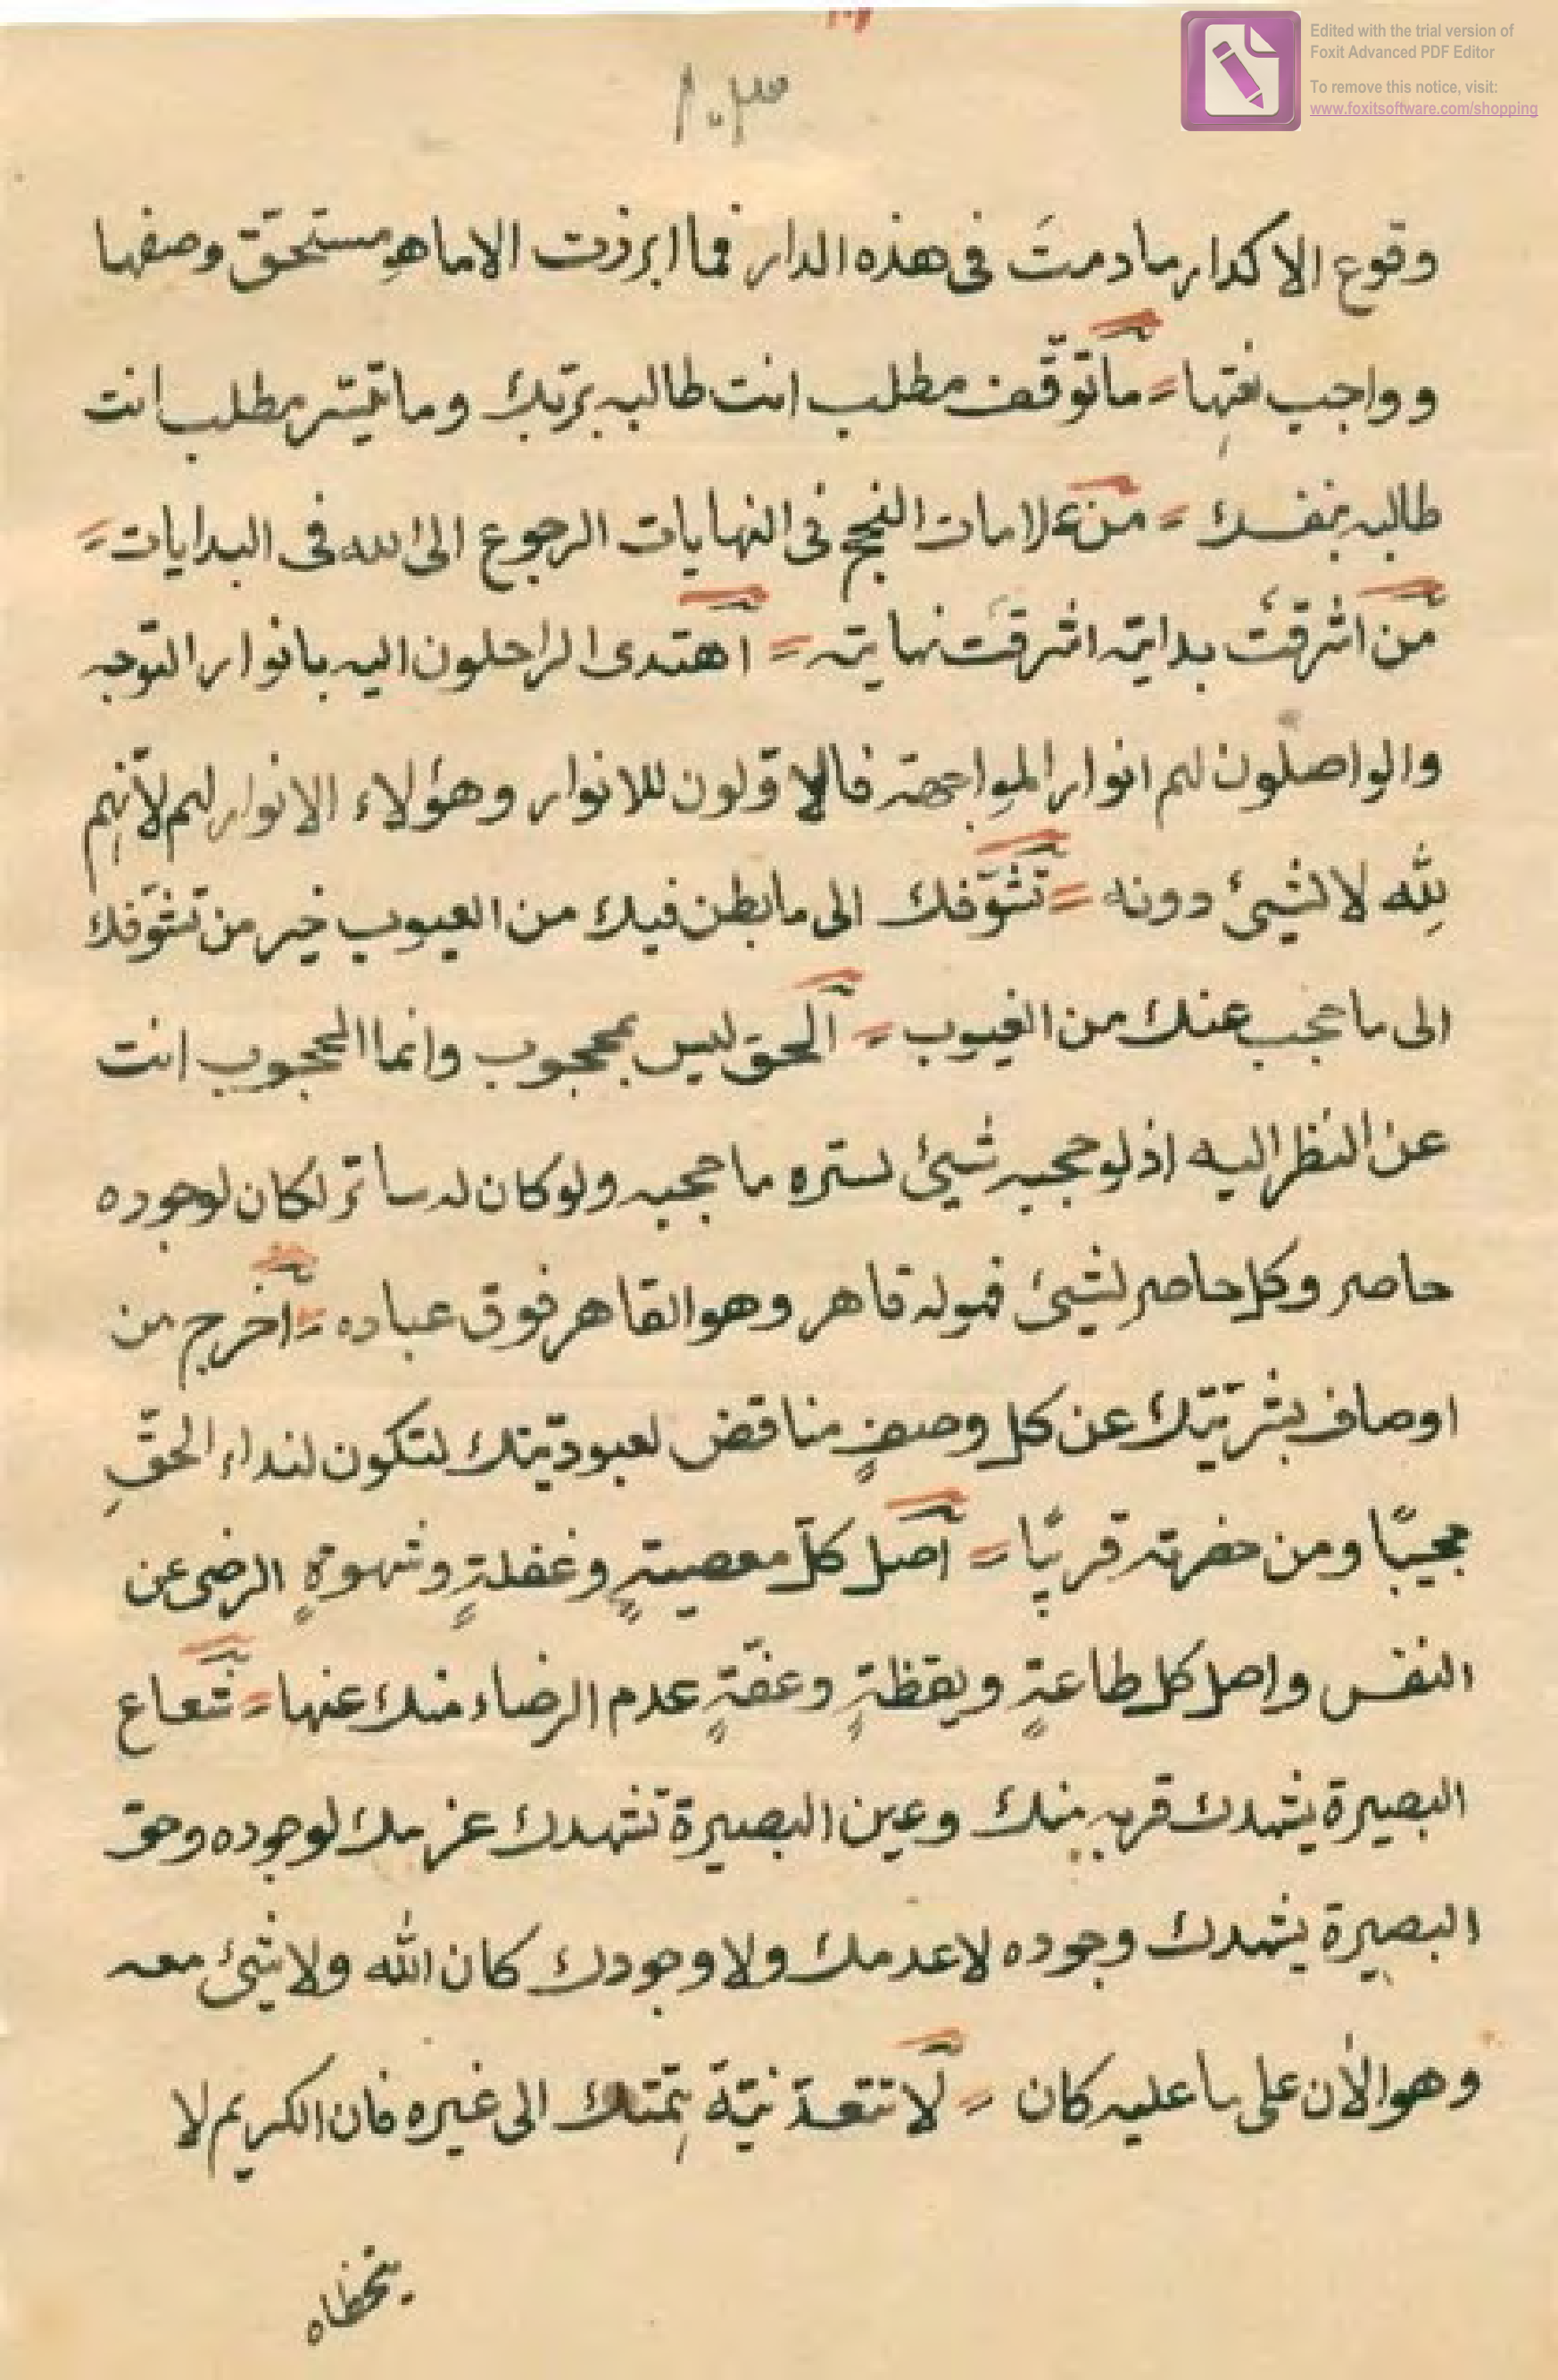 Edited with the trial version of
Foxit Advanced PDF Editor
To remove this notice, visit:
www.foxitsoftware.com/shopping
١٠٣
وقوع الاكدار مادمتَ فى هذه الدار فما ابرزت الا ماهو مستحقّ وصفها
وواجب نعتِها = مَا توقّف مطلب انت طالبه بربّك وما تيسّر مطلب انت
طالبه بنفسك = من علامات النجح فى النهايات الرجوع الى الله فى البدايات =
مَن اشرقَت بدايته اشرقَت نهايته = اهتدى الراحلون اليه بانوار التوجه
والواصلون لهم انوار المواجهة فالاوّلون للانوار وهؤلاء الانوار لهم لأنهم
لِلّه لا لشيئ دونه = تشوّفك الى ما بطن فيك من العيوب خير من تشوّفك
الى ما حجب عنك من الغيوب = الحق ليس بمحجوب وانما المحجوب انت
عن النظر اليه اذ لو حجبه شيئ لستره ما حجبه ولو كان له ساتر لكان لوجوده
حاصر وكل حاصر لشيئ فهو له قاهر وهو القاهر فوق عباده = اخرج من
اوصاف بشريّتك عن كل وصفٍ مناقض لعبوديّتك لتكون لنداء الحقِّ
مجيبًا ومن حضرته قريبًا = اصل كلّ معصيةٍ وغفلةٍ وشهوةٍ الرضى عن
النفس واصل كل طاعةٍ ويقظةٍ وعفّةٍ عدم الرضاء منك عنها = شعاع
البصيرة يشهدك قربه منك وعين البصيرة تشهدك عدمك لوجوده وحق
البصيرة يشهدك وجوده لا عدمك ولا وجودك كان الله ولا شيئ معه
وهو الأن على ما عليه كان = لا تتعدّ نيّة همّتك الى غيره فان الكريم لا
يتخطاه